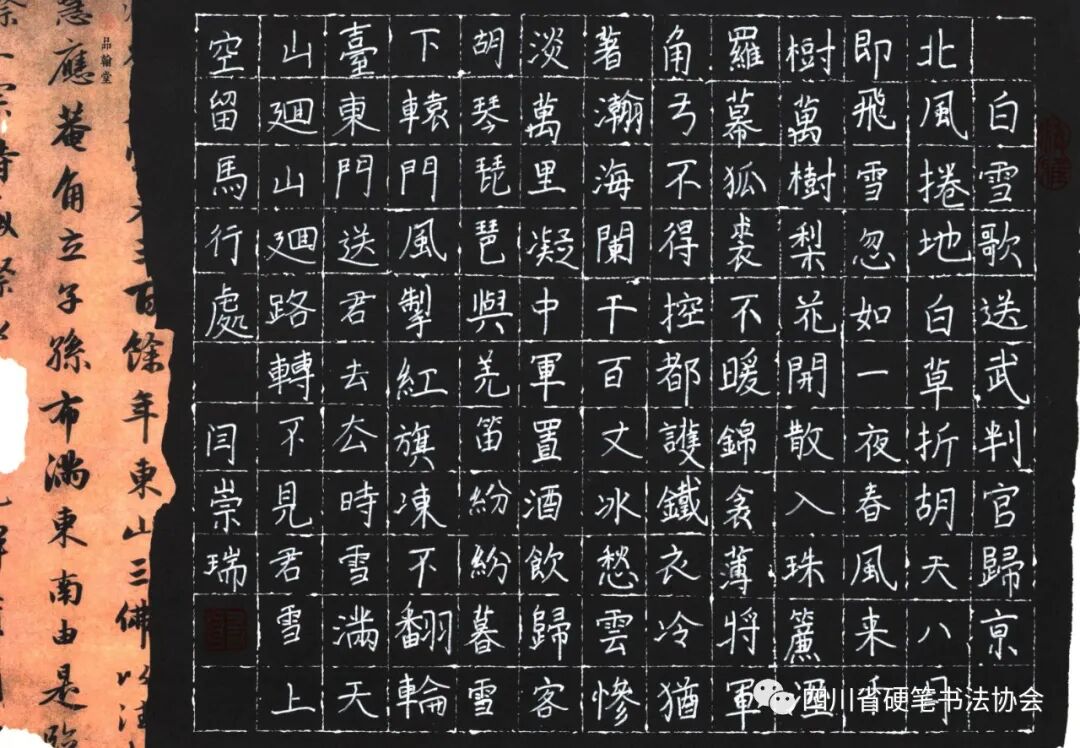 白雪歌送武判官歸京
北風捲地白草折胡天八月
即飛雪忽如一夜春風来千
樹萬樹梨花開散入珠簾濕
羅幕狐裘不暖錦衾薄將軍
角弓不得控都護鐵衣冷猶
著瀚海闌干百丈冰愁雲慘
淡萬里凝中軍置酒飲歸客
胡琴琵琶與羌笛紛紛暮雪
下轅門風掣紅旗凍不翻輪
臺東門送君去去時雪滿天
山廻山廻路轉不見君雪上
空留馬行處
閆崇瑞
品翰堂
百餘年東山三佛以
慧應菴角立子孫布滿東南由是臨
四川省硬笔书法协会